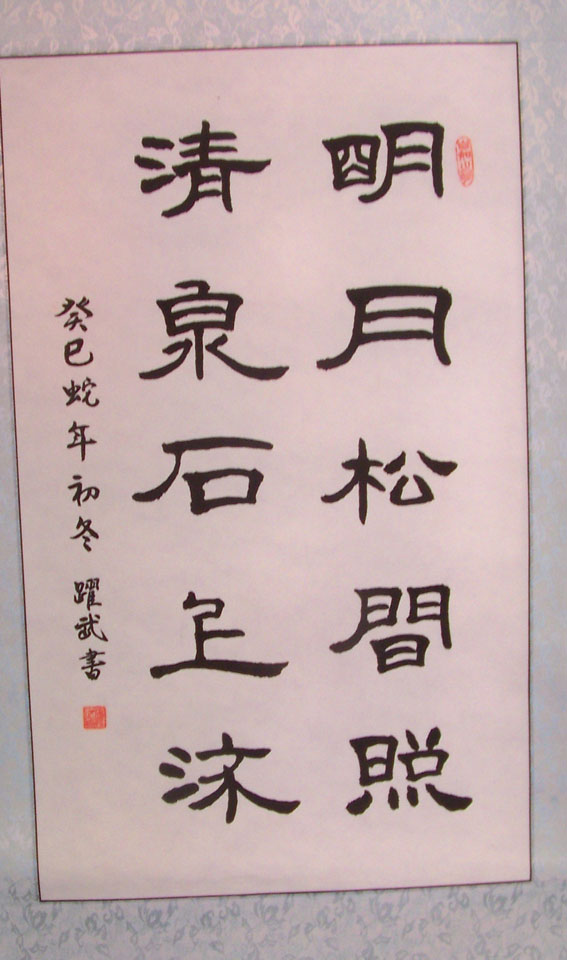 明月松間照
清泉石上流
癸巳蛇年初冬 躍武書